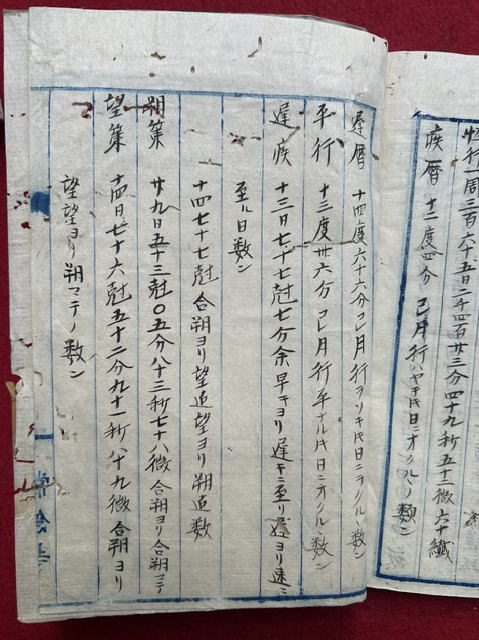 恒行一周三百六十五日二千四百廿三分四十九秒五十二微六十繊
疾暦 十二度四分 コレ月行ハヤキ日ニオクルヽノ数ン
遅暦 十四度六十六分 コレ月行ヲソキ日ニヲクルヽ数ン
平行 十三度卅六分 コレ月行平ナル日ニオクル数ン
遅疾 十三日七十七刻七分余 早キヨリ遅キニ至リ遅ヨリ速ニ
至ル日数ン
十四七十七刻 合朔ヨリ望迄望ヨリ朔迄数
朔策 廿九日五十三刻〇五分八十三秒七十八微 合朔ヨリ合朔マテ
望策 十四日七十六刻五十二分九十一秒八十九微 合朔ヨリ
望望ヨリ朔マテノ数ン